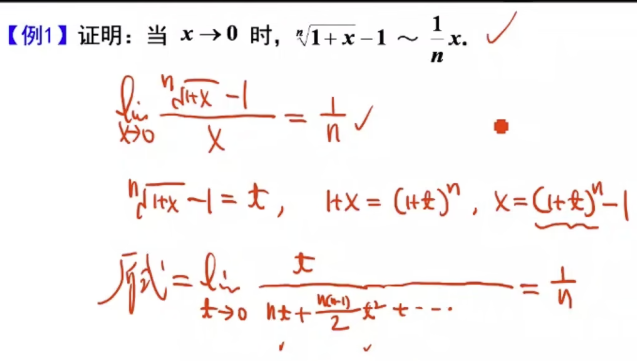 【例1】证明：当 x→0 时，ⁿ√(1+x) −1 ～ 1/n x. ✓
lim x→0 (ⁿ√(1+x) −1)/x = 1/n ✓
ⁿ√(1+x) −1 = t, 1+x = (1+t)ⁿ, x = (1+t)ⁿ −1
原式 = lim t→0 t/(nt + n(n-1)/2 t² + ···) = 1/n